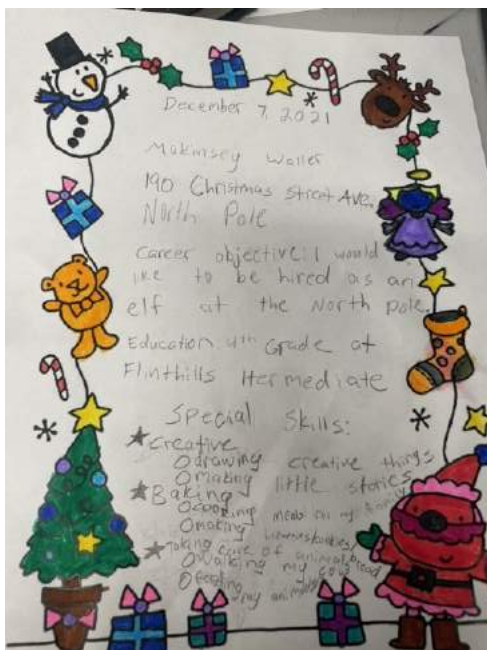 December 7, 2021
Makinsey Waller
190 Christmas Street Ave.
North Pole
Career objective: I would
like to be hired as an
elf at the North pole.
Education: 4th Grade at
Flinthills
Special Skills:
★creative
O drawing creative things
O making little stories
★Baking
O cooking meals for my family
O making
★Taking care of animals
O walking my cow
O feeding my animals